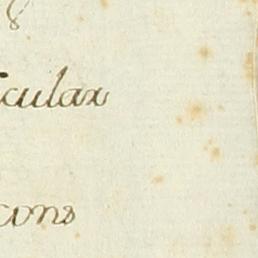 cular
cons